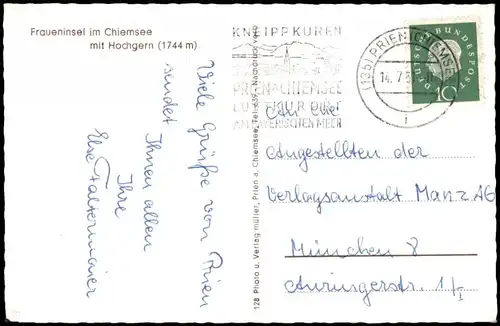 Fraueninsel im Chiemsee
mit Hochgern (1744 m)
Viele Grüße von Prien
sendet Ihnen allen
Ihre
Else Faltermaier
128 Photo u. Verlag müller, Prien a. Chiemsee, Tel. 659 - Nachdruck verb.
KNEIPPKUREN
PRIEN/CHIEMSEE
LUFTKURORT
AM BAYERISCHEN MEER
(13b) PRIEN (CHIEMSEE)
14. 7.
i
DEUTSCHE BUNDESPOST
10
An die
Angestellten der
Verlagsanstalt Manz AG
München 8
Anzingerstr. 1/I